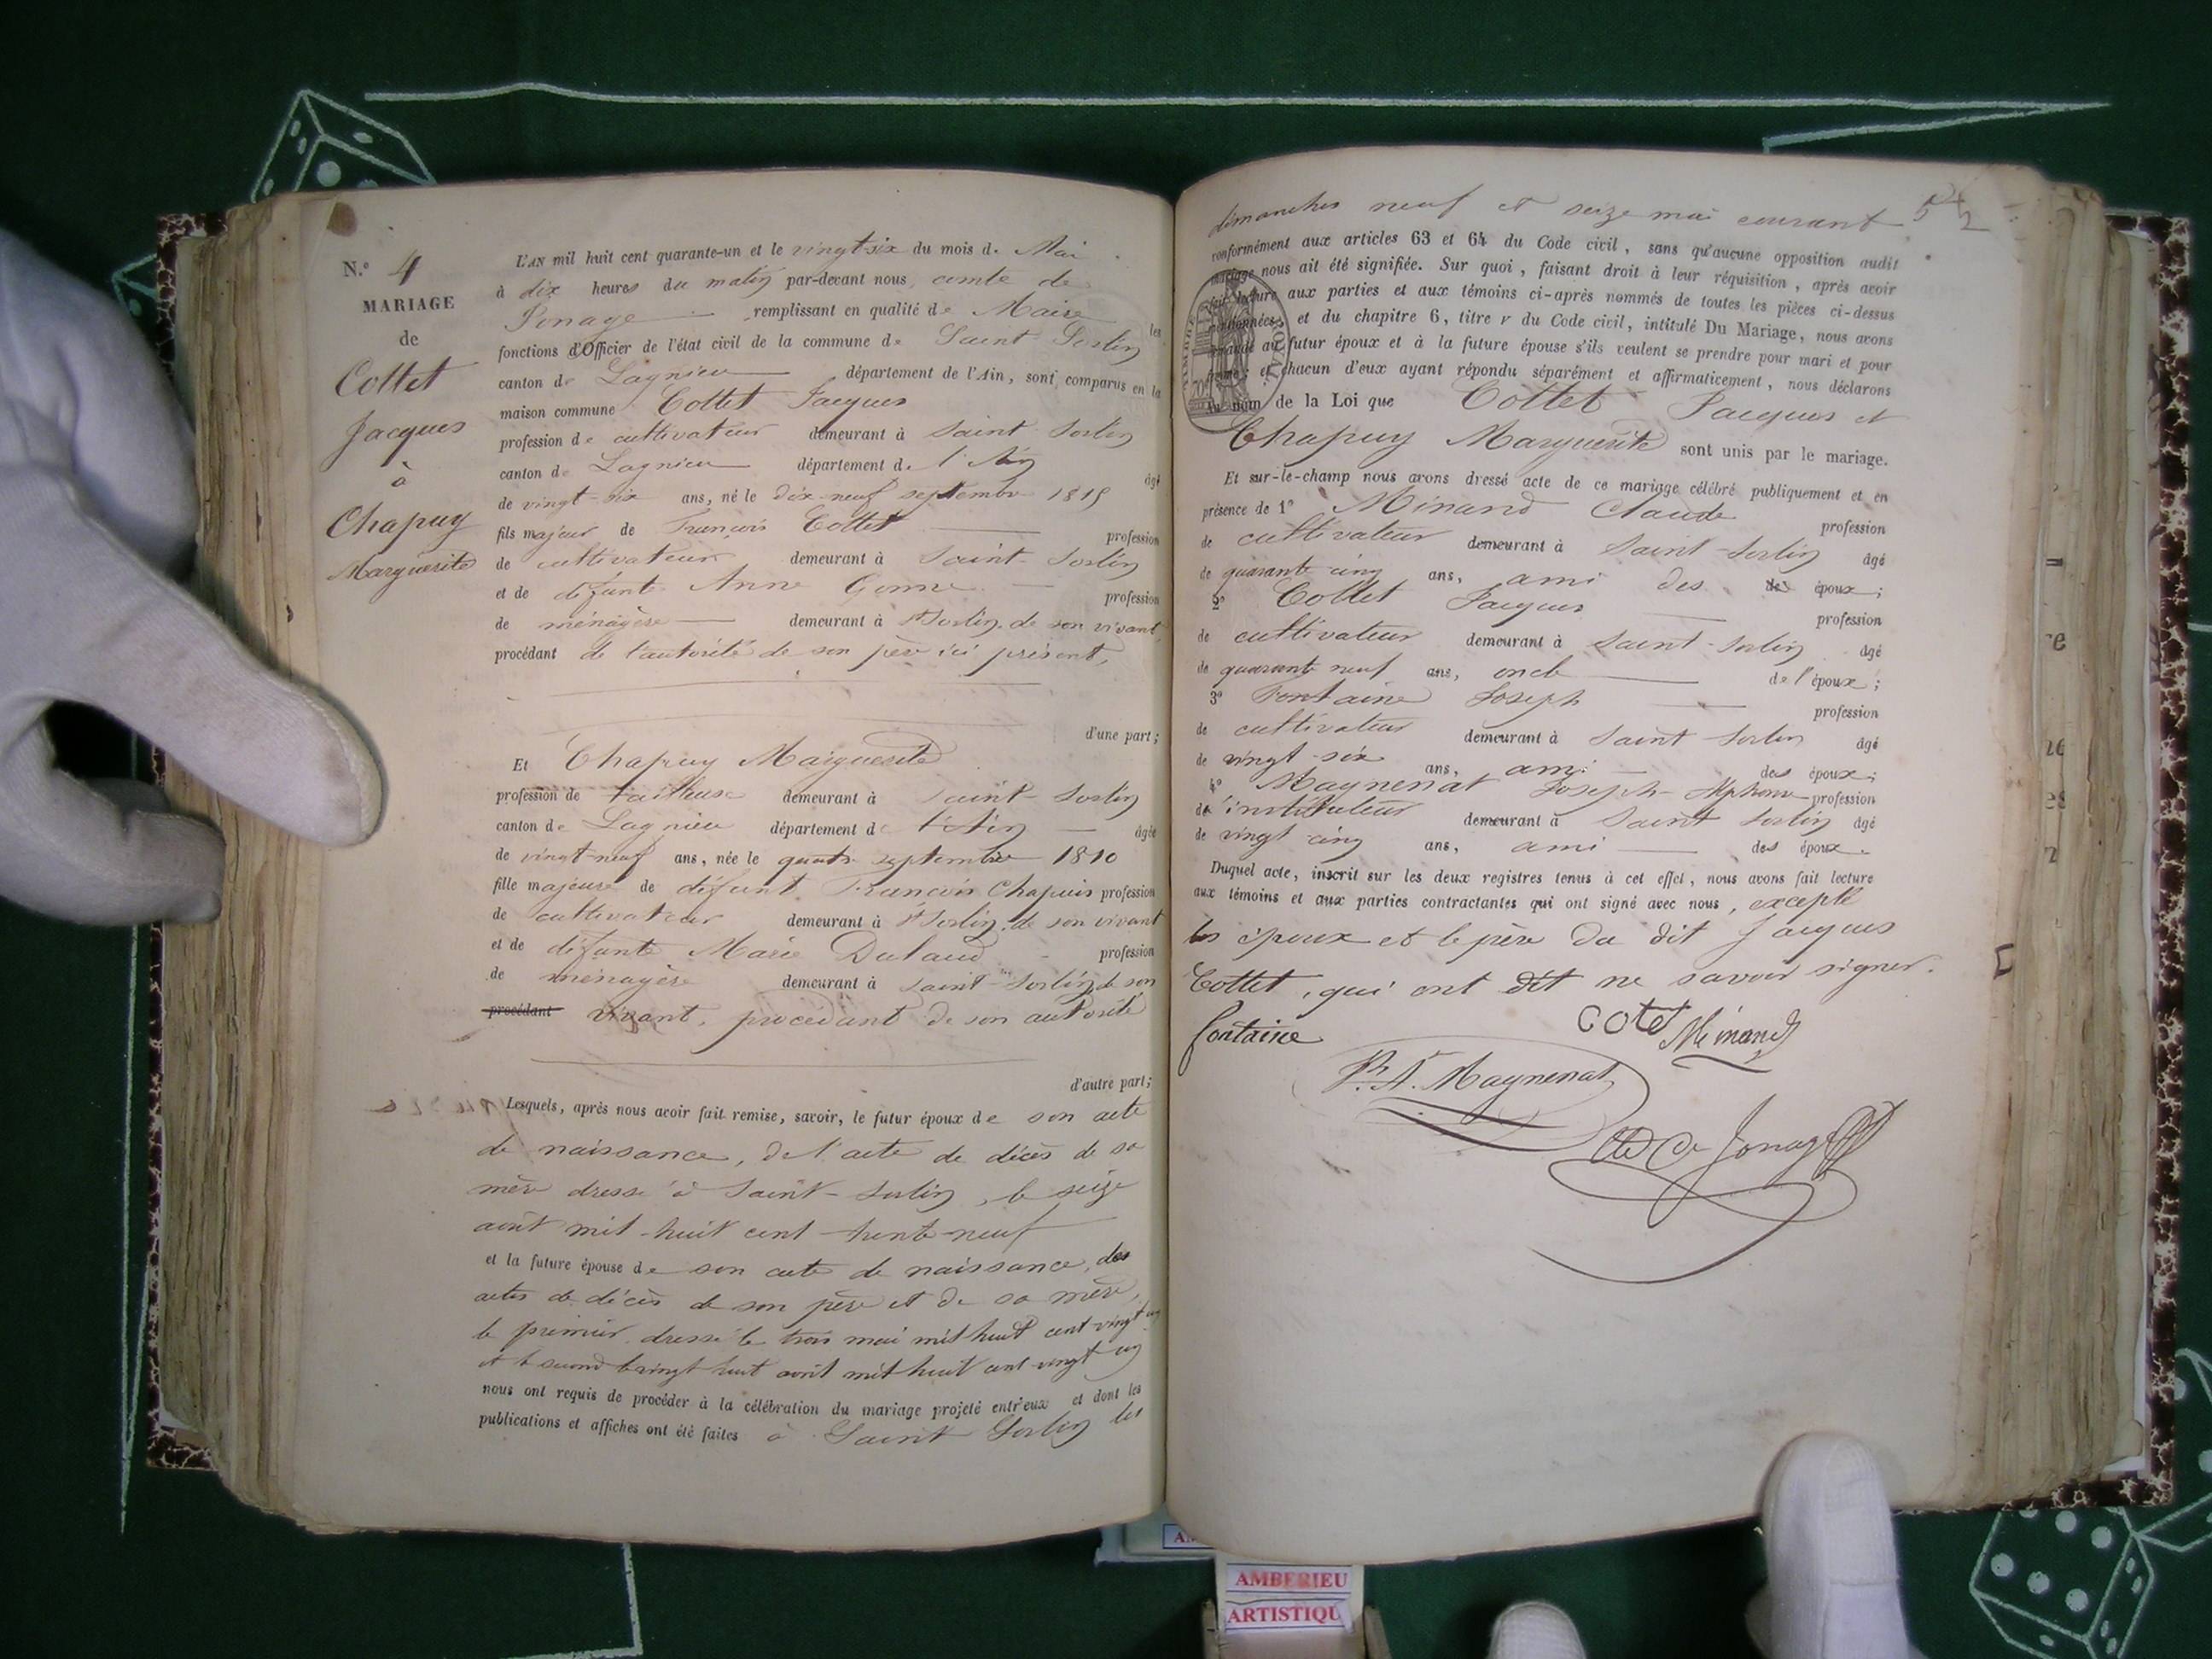 N.° 4
MARIAGE
de
Cottet
Jacques
à
Chapuy
Marguerite
L'AN mil huit cent quarante-un et le vingt six du mois de Mai
à dix heures du matin par-devant nous, comte de
Jonage remplissant en qualité de Maire les
fonctions d'Officier de l'état civil de la commune de Saint Sorlin
canton de Lagnieu département de l'Ain, sont comparus en la
maison commune Cottet Jacques
profession de cultivateur demeurant à Saint Sorlin
canton de Lagnieu département de l'Ain âgé
de vingt-six ans, né le dix-neuf septembre 1815
fils majeur de François Cottet profession
de cultivateur demeurant à Saint-Sorlin
et de défunte Anne profession
de ménagère demeurant à St Sorlin, de son vivant,
procédant de l'autorité de son père ici présent,
d'une part;
Et Chapuy Marguerite
profession de tailleuse demeurant à Saint-Sorlin
canton de Lagnieu département de l'Ain âgée
de vingt-neuf ans, née le quatre septembre 1810
fille majeure de défunt François Chapuis profession
de cultivateur demeurant à St Sorlin, de son vivant
et de défunte Marie profession
de ménagère demeurant à Saint-Sorlin de son
procédant vivant, procédant de son autorité
d'autre part;
Lesquels, après nous avoir fait remise, savoir, le futur époux de son acte
de naissance, de l'acte de décès de sa
mère dressé à Saint-Sorlin, le seize
août mil-huit cent trente-neuf
et la future épouse de son acte de naissance, des
actes de décès de son père et de sa mère,
le premier dressé le trois mai mil huit cent vingt un
et le second le vingt huit avril mil huit cent vingt un
nous ont requis de procéder à la célébration du mariage projeté entr'eux et dont les
publications et affiches ont été faites à Saint Sorlin les
dimanches neuf et seize mai courant
conformément aux articles 63 et 64 du Code civil, sans qu'aucune opposition audit
mariage nous ait été signifiée. Sur quoi, faisant droit à leur réquisition, après avoir
fait lecture aux parties et aux témoins ci-après nommés de toutes les pièces ci-dessus
mentionnées, et du chapitre 6, titre v du Code civil, intitulé Du Mariage, nous avons
demandé au futur époux et à la future épouse s'ils veulent se prendre pour mari et pour
femme; et chacun d'eux ayant répondu séparément et affirmativement, nous déclarons
au nom de la Loi que Cottet Jacques et
Chapuy Marguerite sont unis par le mariage.
Et sur-le-champ nous avons dressé acte de ce mariage célébré publiquement et en
présence de 1° Minand Claude profession
de cultivateur demeurant à Saint-Sorlin âgé
de quarante cinq ans, ami des époux;
2° Cottet Jacques profession
de cultivateur demeurant à Saint-Sorlin âgé
de quarante neuf ans, oncle de l'époux;
3° Fontaine Joseph profession
de cultivateur demeurant à Saint Sorlin âgé
de vingt-six ans, ami des époux;
4° Maynenat Joseph-Alphonse profession
d'instituteur demeurant à Saint Sorlin âgé
de vingt cinq ans, ami des époux.
Duquel acte, inscrit sur les deux registres tenus à cet effet, nous avons fait lecture
aux témoins et aux parties contractantes qui ont signé avec nous, excepté
les époux et le père du dit Jacques
Cottet, qui ont dit ne savoir signer.
cotet Minand
fontaine
Maynenat
de Jonage
AMBERIEU
ARTISTIQU